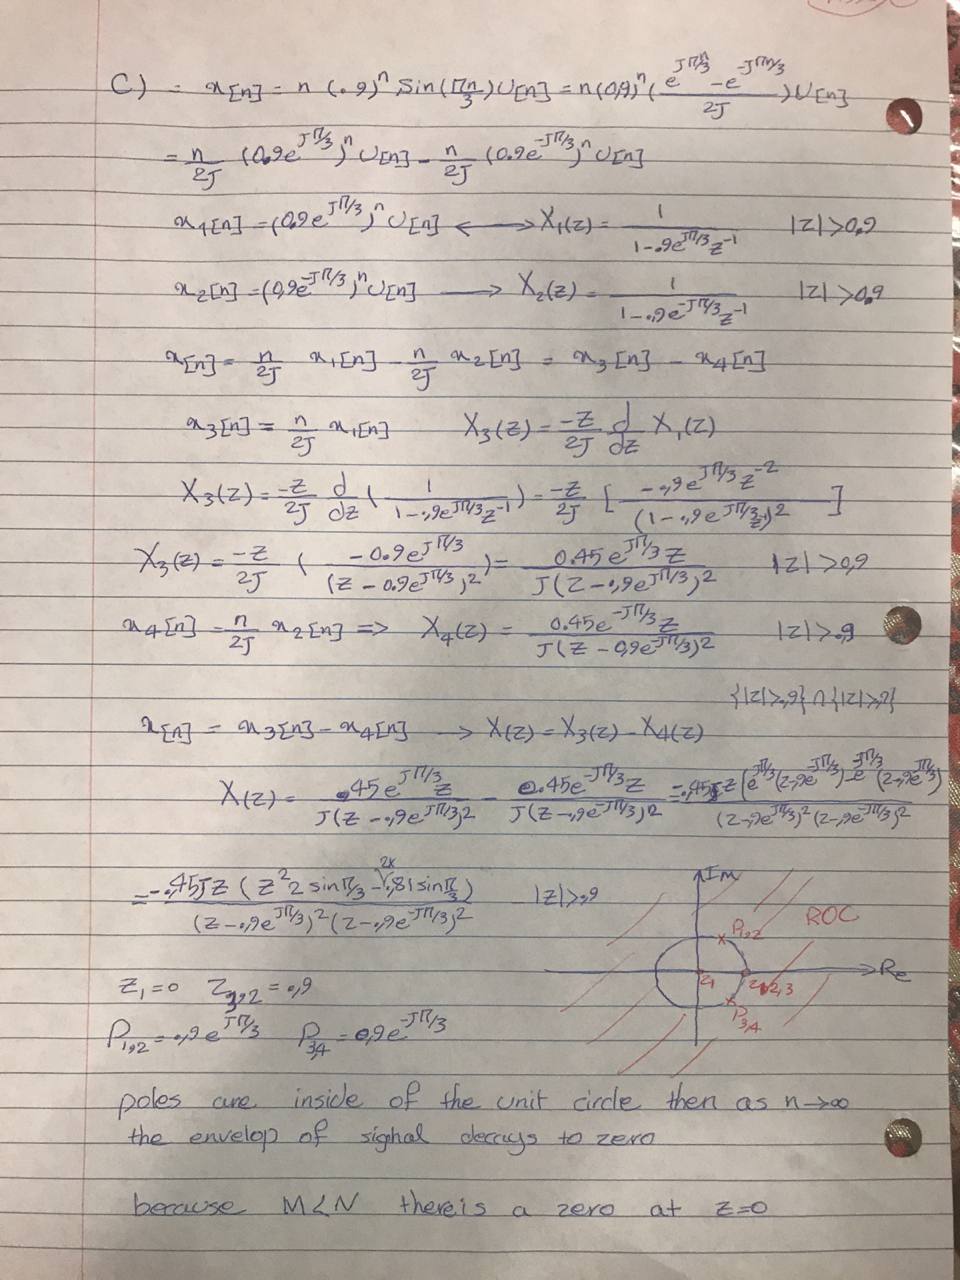 C) x[n] = n (.9)^n Sin(πn/3) U[n] = n(0,9)^n ( (e^{Jπn/3} - e^{-Jπn/3}) / 2J ) U[n]
= n/2J (0.9e^{Jπ/3})^n U[n] - n/2J (0.9e^{-Jπ/3})^n U[n]
x1[n] = (0,9e^{Jπ/3})^n U[n] ⟷ X1(z) = 1 / (1-.9e^{Jπ/3}z^{-1}) |z|>0,9
x2[n] = (0,9e^{-Jπ/3})^n U[n] ⟶ X2(z) = 1 / (1-.9e^{-Jπ/3}z^{-1}) |z|>0.9
x[n] = n/2J x1[n] - n/2J x2[n] = x3[n] - x4[n]
x3[n] = n/2J x1[n] X3(z) = -z/2J d/dz X1(z)
X3(z) = -z/2J d/dz ( 1 / (1-.9e^{Jπ/3}z^{-1}) ) = -z/2J [ -.9e^{Jπ/3}z^{-2} / (1-.9e^{Jπ/3}z^{-1})^2 ]
X3(z) = -z/2J ( -0.9e^{Jπ/3} / (z-0.9e^{Jπ/3})^2 ) = 0.45e^{Jπ/3}z / J(z-.9e^{Jπ/3})^2 |z|>0,9
x4[n] = n/2J x2[n] => X4(z) = 0.45e^{-Jπ/3}z / J(z-0,9e^{-Jπ/3})^2 |z|>.9
{|z|>.9}∩{|z|>.9}
x[n] = x3[n] - x4[n] → X(z) = X3(z) - X4(z)
X(z) = .45e^{Jπ/3}z / J(z-.9e^{Jπ/3})^2 - 0.45e^{-Jπ/3}z / J(z-.9e^{-Jπ/3})^2 = -.45Jz(e^{Jπ/3}(z-.9e^{-Jπ/3})-e^{-Jπ/3}(z-.9e^{Jπ/3}) / (z-.9e^{Jπ/3})^2(z-.9e^{-Jπ/3})^2
= -.45Jz ( z^2 2 sinπ/3 - 2x.81 sinπ/3 ) / (z-.9e^{Jπ/3})^2 (z-.9e^{-Jπ/3})^2 |z|>.9
Im
ROC
P1,2
Re
z1
P3,4
z1=0 z3,2=.9
P1,2=.9e^{Jπ/3} P3,4=0,9e^{-Jπ/3}
poles are inside of the unit circle then as n→∞
the envelop of sighal decays to zero
because M<N there is a zero at z=0